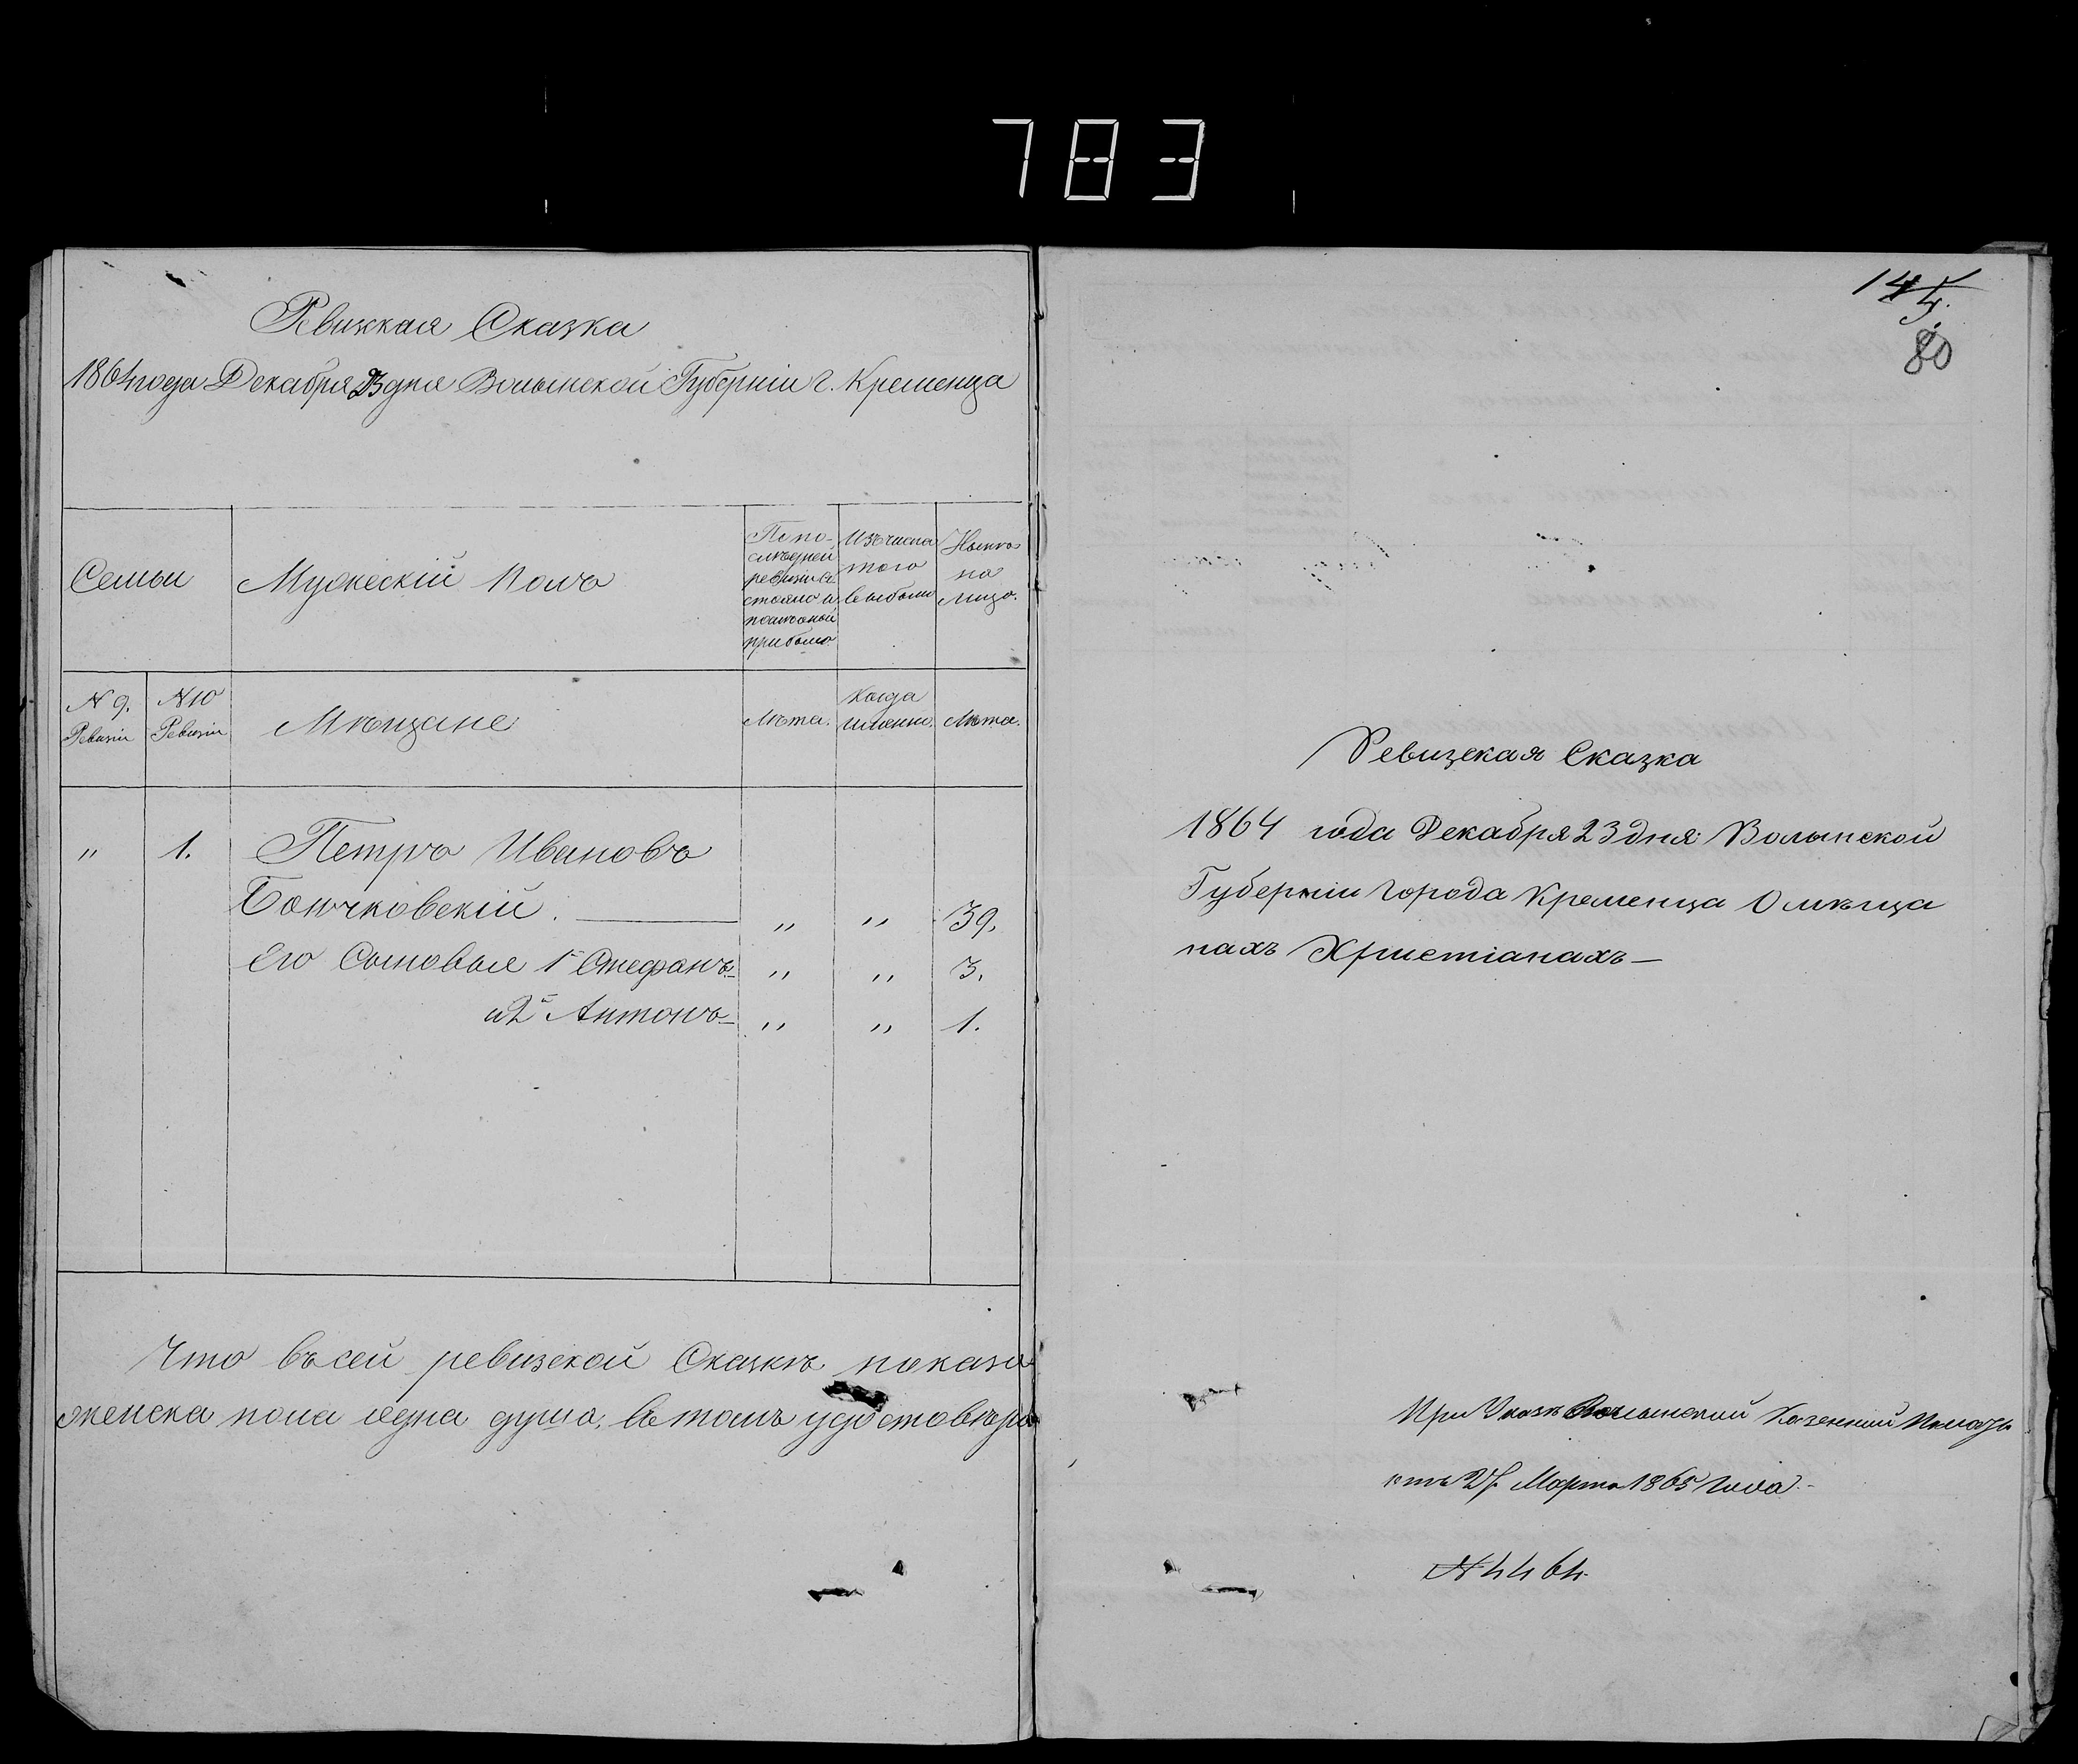 783
Ревизская Сказка
1864 года Декабря 23 дня Волынской Губерніи г. Кременца
Семьи
Мужескій полъ
По по-
слѣдней
ревизіи со
стояло и
послѣ оной
прибыло
Изъ числа
того
выбыло
Нынѣ
на
лицо.
№ 9.
Ревизіи
№ 10
Ревизіи
Мѣщане
Лѣта.
Когда
именно.
Лѣта.
" 1. Петръ Ивановъ
Бончковскій. " " 39.
Его Сыновья 1й Стефанъ " " 3.
и 2й Антонъ " " 1.
Что въ сей ревизской Сказкѣ показа
женска пола една душа, въ томъ удостовѣря
145.
80
Ревизская Сказка
1864 года Декабря 23 дня Волынской
Губерніи города Кременца О мѣща
нахъ Христіанахъ
При Указѣ Волынской Казенной Палаты
отъ Марта 1865 года.
№ 4464